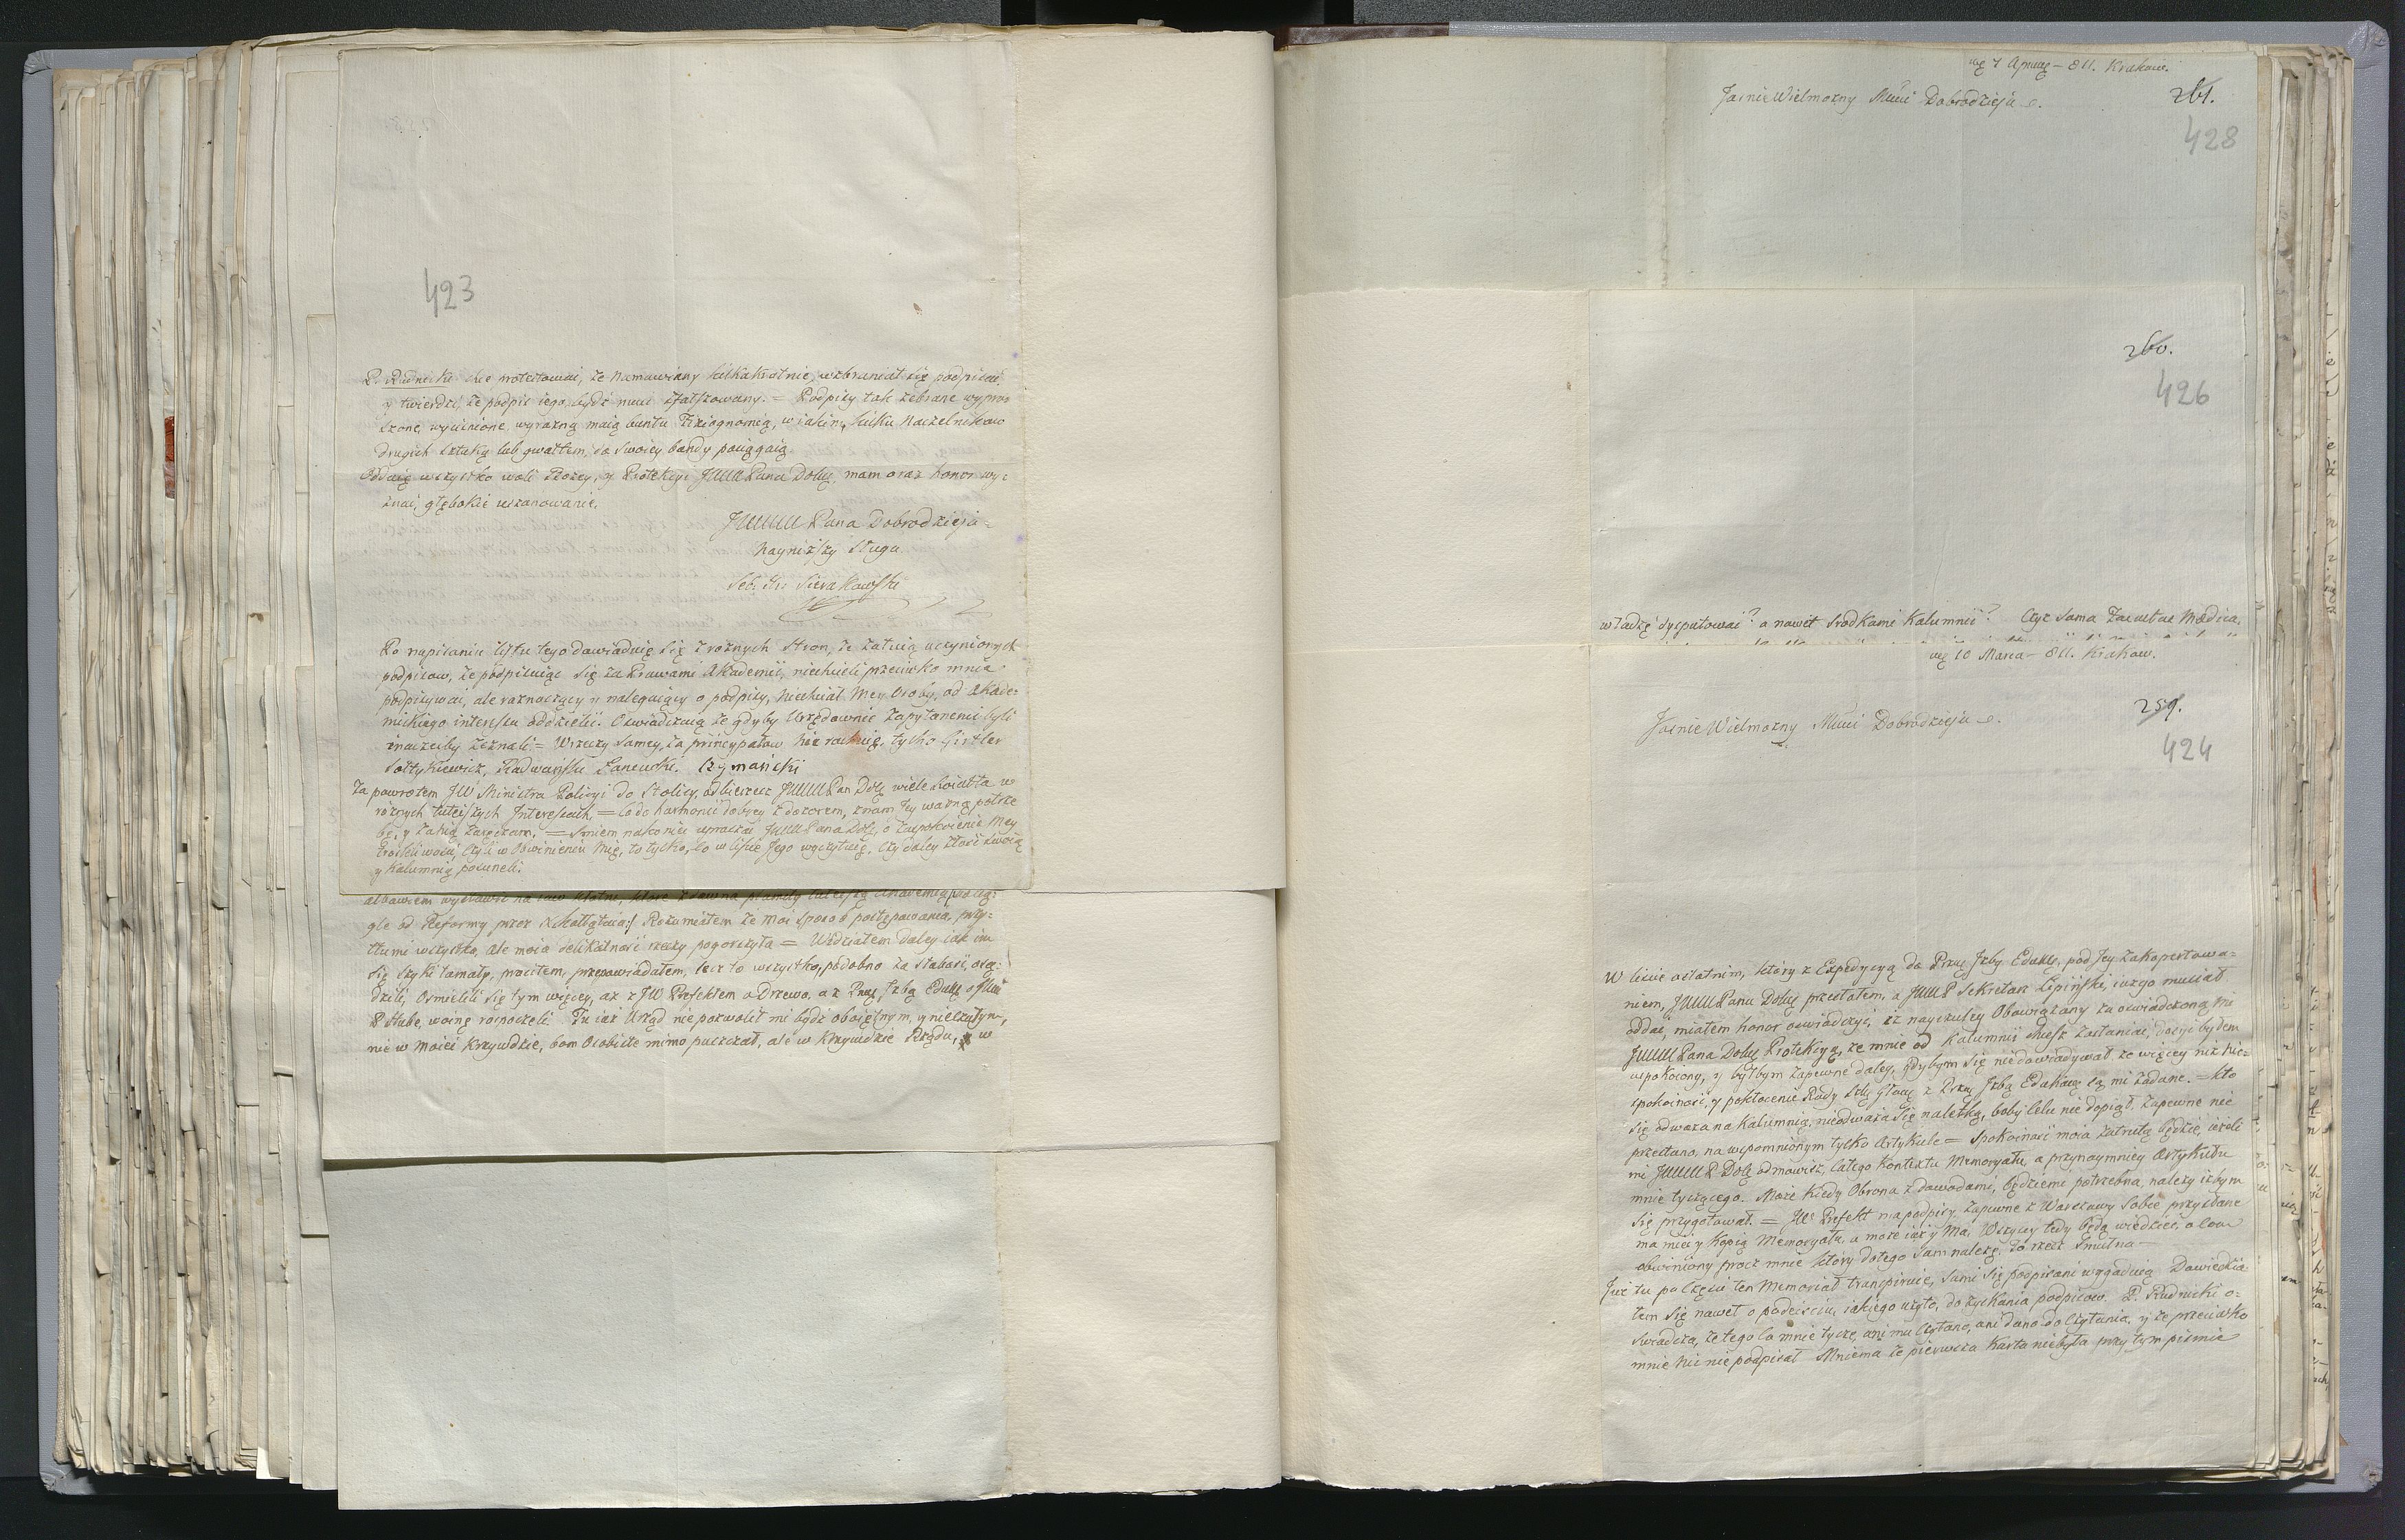 423
P. Rudnicki chce protestować, że namawiany kilkakrotnie, wzbraniał się podpisać,
y twierdzi, że podpis iego bydź musi sfałszowany. = Podpisy tak zebrane wypro=
szone, wyciśnione, wyraźną maią buntu Fiziognomią, w iakim, kilku Naczelnikow
drugich sztuką lub gwałtem, do swoiey bandy pociągaią.
Oddaię wszystko woli Bożey, y Protekcyi JWW Pana Dobę, mam oraz honor wy=
znać głębokie uszanowanie.
JWW Pana Dobrodzieja =
Nayniższy Sługa
Seb. Hr. Sierakowski
Po napisaniu listu tego dowiaduię się z roznych stron, że żałuią uczynionych
podpisow, że podpisuiąc się za Prawami Akademii, niechcieli przeciwko mnie
podpisywać, ale roznoszący y nalegaiący o podpisy, niechciał Mey Osoby, od Akade=
mickiego interessu oddzielić. Oswiadczaią że gdyby Urzędownie zapytanemi byli
inaczeiby zeznali. = W rzeczy samey, za pryncypałow nie rachuię, tylko Girtler
Sołtykiewicz, Radwański Łancucki. Szymański
Za powrotem JW Ministra Policyi do Stolicy, odbierzesz JWW Pan Dobę wiele swiatła w
roznych tuteiszych Interessach, = co do harmonii dobrey z dozorem, znam Jey ważną potrze
bę, y za nią zaręczam. = Smiem nakoniec upraszać JWW Pana Dobę, o zaspokoienie Mey
troskliwości, czyli w Obwinieniu Mię, to tylko, co w liście Jego wyczytuię, czy daley złość swoią
y kalumnią posuneli.
albowiem wystawić na iaw
gle od Reformy przez X. Kołłątaia/ Rozumiałem że moi sposob postępowania przy=
tłumi wszystko, ale moia delikatność rzeczy pogorszyła = Widziałem daley iak im
się szyki łamały, prosiłem, przepowiadałem, lecz to wszystko, podobno za słabość, osą=
dzili, osmielili się tym więcey, aż z JW Prefektem o Drzewo, a z Przę Jzbą Eduk o
P. Stubę, woinę rospoczeli. Tu iuż Urząd nie pozwolił mi bydź oboiętnym, y nieczułym,
nie w moiei krzywdzie, bom Osobiste mimo puszczał, ale w krzywdzie Rządu, w
7 811. Krakow.
Jasnie Wielmożny Mości Dobrodzieju.
261.
428
260.
426
władzę dysputować? a nawet srodkami Kalumnii? Czyż sama Facultas Medica,
10 Marca - 811. Krakow.
259.
Jasnie Wielmożny Mości Dobrodzieju.
424
W liście ostatnim, ktory z Expedycyą do Przę Jzby Eduk, pod Jey zakopertowa=
niem, JWW Panu Dobę przesłałem, a JWW P Sekretarz Lipiński, iuż go musiał
oddać, miałem honor oswiadczyć, iż nayczulej Obowiązany za oswiadczoną mi
JWW Pana Dobę Protekcyą, że mnie od kalumnii chcesz zasłaniać, dosyć byłem
uspokoiony, y byłbym zapewne daley, gdybym się niedowiadywał że więcey niż nie=
spokoiność, y pokłocenie Rady z Przę Jzbą Edukacę są mi zadane. = Kto
się odważa na kalumnią, nieodważa się na lekką, boby celu nie dopiął. Zapewne nie
przestano, na wspomnionym tylko Artykule = Spokoiność moia zatrutą będzie, ieżeli
mi JWW P Dobę odmowisz, całego kontextu Memoryału, a przynaymniey Artykułu
mnie tyczącego. Może kiedy Obrona z dowodami, będziemi potrzebna, należy iżbym
się przygotował. = JW Prefekt na podpisy zapewne z Warszawy sobie przysłane
ma mieć y kopią Memoryału, a może iuż y Ma, Wszyscy tedy będą wiedzieć, o co
obwiniony procz mnie ktory do tego sam należę, to rzecz smutna
Już tu po części ten Memoriał transpiruie, sami się podpisani wygaduią Dowiedzia
łem się nawet o podeisciu, iakiego użyto, do zyskania podpisow. P. Rudnicki o=
swiadcza, że tego co mnie tycze, ani mu czytano, ani dano do czytania, y że przeciwko
mnie nic nie podpisał Mniema że pierwsza karta niebyła przy tym pismie